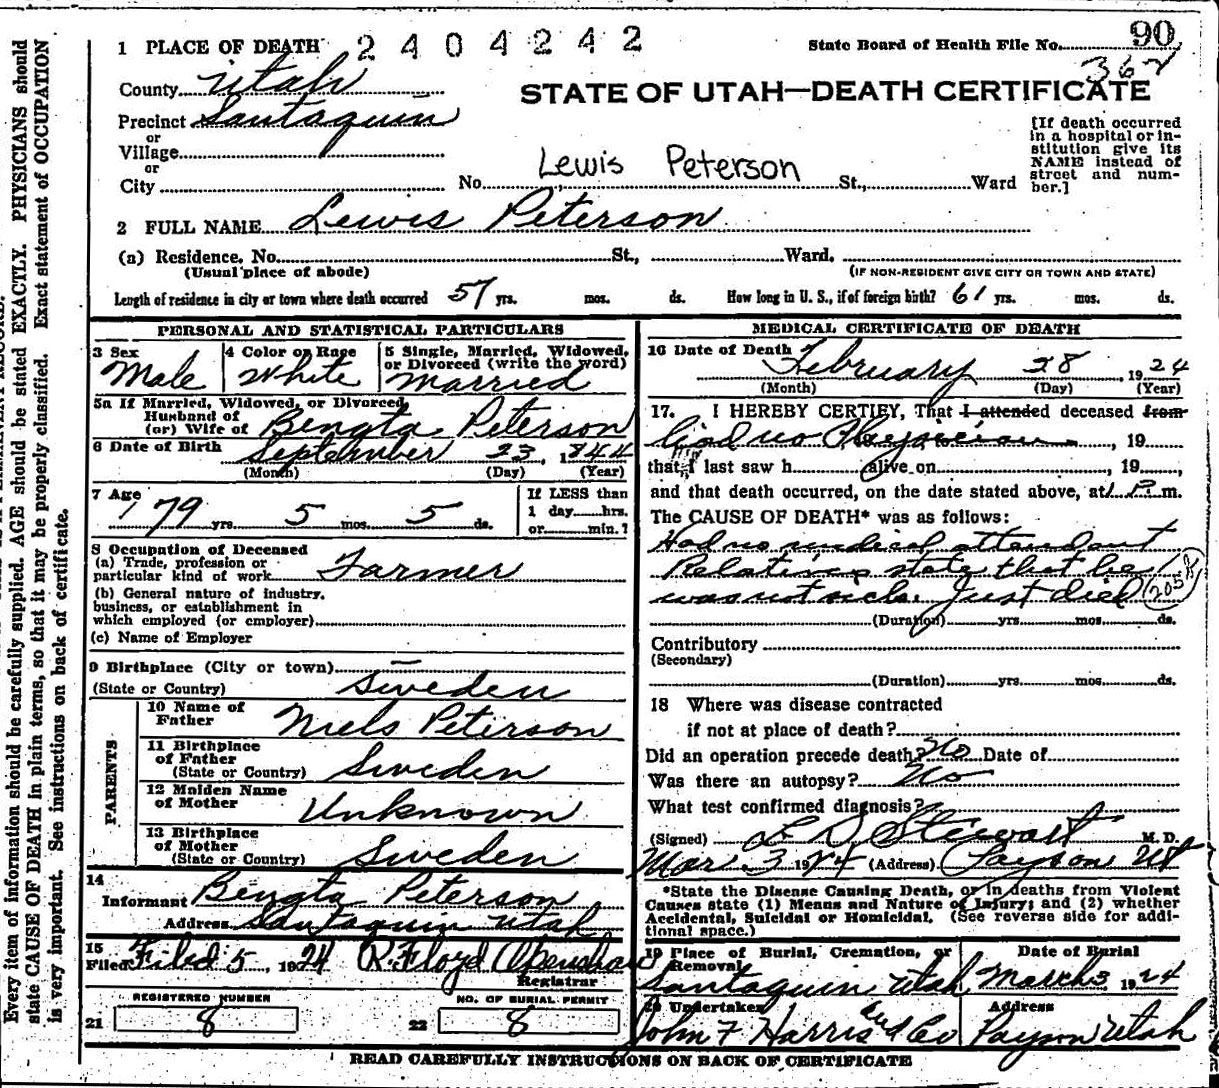 1 PLACE OF DEATH 2404242
State Board of Health File No. 90
362
County Utah
STATE OF UTAH—DEATH CERTIFICATE
Precinct Santaquin
or
Village
or
City
No. Lewis Peterson St., Ward
[If death occurred
in a hospital or in-
stitution give its
NAME instead of
street and num-
ber.]
2 FULL NAME Lewis Peterson
(a) Residence. No. St., Ward.
(Usual place of abode)
(IF NON-RESIDENT GIVE CITY OR TOWN AND STATE)
Length of residence in city or town where death occurred 57 yrs. mos. ds. How long in U. S., if of foreign birth? 61 yrs. mos. ds.
PERSONAL AND STATISTICAL PARTICULARS
3 Sex
Male
4 Color or Race
White
5 Single, Married, Widowed,
or Divorced (write the word)
Married
5a If Married, Widowed, or Divorced
Husband of
(or) Wife of Bengta Peterson
6 Date of Birth September 23, 1844
(Month) (Day) (Year)
7 Age
79 yrs. 5 mos. 5 ds.
If LESS than
1 day hrs.
or min.?
8 Occupation of Deceased
(a) Trade, profession or
particular kind of work Farmer
(b) General nature of industry,
business, or establishment in
which employed (or employer)
(c) Name of Employer
9 Birthplace (City or town) —
(State or Country) Sweden
PARENTS
10 Name of
Father Niels Peterson
11 Birthplace
of Father
(State or Country) Sweden
12 Maiden Name
of Mother Unknown
13 Birthplace
of Mother
(State or Country) Sweden
14
Informant Bengta Peterson
Address Santaquin Utah
15
Filed Filed 5, 1924 R. Floyd Openshaw
Registrar
REGISTERED NUMBER
21 8
NO. OF BURIAL PERMIT
22 8
MEDICAL CERTIFICATE OF DEATH
16 Date of Death February 28 1924
(Month) (Day) (Year)
17. I HEREBY CERTIFY, That I attended deceased from
had no Physician, 19
that I last saw h alive on , 19 ,
and that death occurred, on the date stated above, at 1 P. m.
The CAUSE OF DEATH* was as follows:
Had no medical attendant
Relatives state that he
was not sick. Just died 205
(Duration) yrs. mos. ds.
Contributory
(Secondary)
(Duration) yrs. mos. ds.
18 Where was disease contracted
if not at place of death?
Did an operation precede death? No Date of
Was there an autopsy? No
What test confirmed diagnosis?
(Signed) L D Stewart M. D.
Mar 3 1924 (Address) Payson Ut
*State the Disease Causing Death, or in deaths from Violent
Causes state (1) Means and Nature of Injury; and (2) whether
Accidental, Suicidal or Homicidal. (See reverse side for addi-
tional space.)
19 Place of Burial, Cremation, or
Removal
Santaquin Utah
Date of Burial
March 3 1924
20 Undertaker
John F Harris and Co
Address
Payson Utah
READ CAREFULLY INSTRUCTIONS ON BACK OF CERTIFICATE
Every item of information should be carefully supplied. AGE should be stated EXACTLY. PHYSICIANS should
state CAUSE OF DEATH in plain terms, so that it may be properly classified. Exact statement of OCCUPATION
is very important. See instructions on back of certificate.